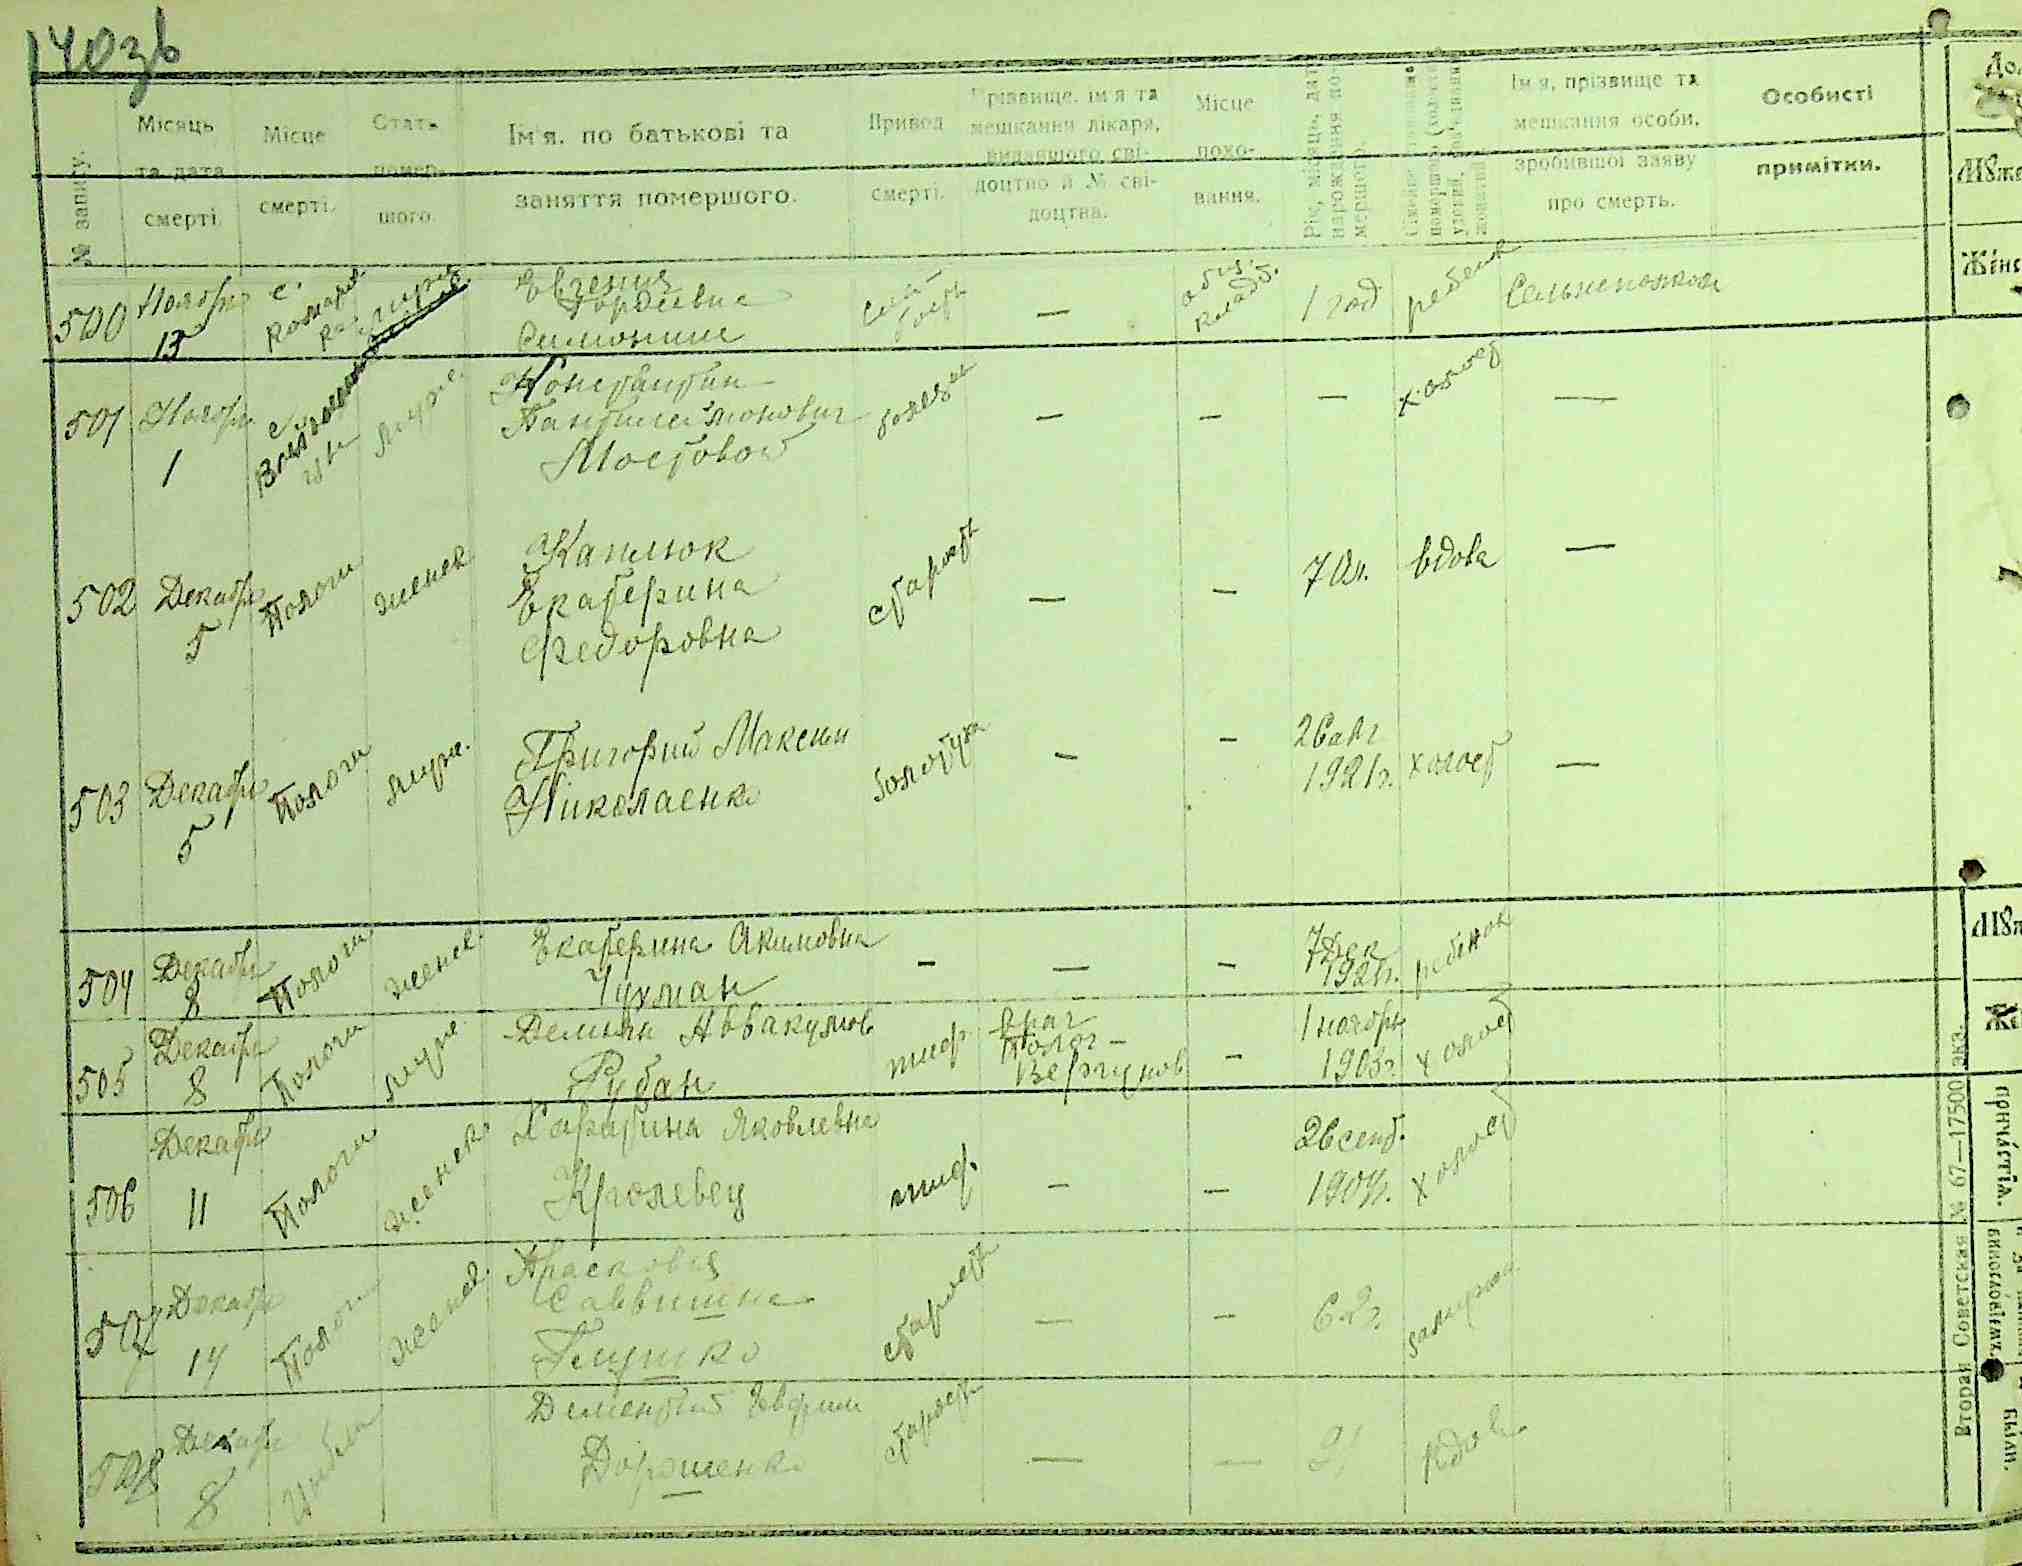 140зв
№ запису.
Місяць
та дата
смерті.
Місце
смерті.
Стать
помер-
шого.
Ім'я, по батькові та
заняття помершого.
Привод
смерті.
Прізвище, ім'я та
мешкання лікаря,
видавшого сві-
доцтво й № сві-
доцтва.
Місце
похо-
вання.
Рік, місяць, дата
народження по-
мершого.
Ім'я, прізвище та
мешкання особи,
зробившої заяву
про смерть.
Особисті
примітки.
500 Ноября
13
с.
Евгения
Гордеевна
Симоним
—
общ.
кладб.
1 год
ребенк
Сельисполком
501 Ноябрь
1
с.
муж.
Константин
Пантилеймонович
Мостовой
болезн
—
—
—
холост
—
502 Декабр
5
Пологи
женск
Каплюк
Екатерина
Федоровна
старость
—
—
70л.
вдова
—
503 Декабр
5
Пологи
муж.
Григорий Максим
Николаенко
золотуха
—
—
26 авг
1921г.
холост
—
504 Декабр
8
Пологи
женск.
Екатерина Акимовна
Чухман
—
—
—
7 Дек
1921г.
ребенок
505 Декабр
8
Пологи
муж.
Демьян Аввакумов
Рубан
тиф
врач
Полог-
Вергунов
—
1 ноябрь
1903г.
холост
506 Декабр
11
Пологи
женск.
Харитина Яковлевна
Кролевец
тиф.
—
—
26 сент.
190
холост
507 Декабр
14
Пологи
женск.
Прасковия
Саввишна
Глушко
старость
—
—
62г.
замуж
508 Декабр
8
Дементий Евфим
Дорошенко
старость
—
—
вдов
Вторая Советская № 67—17500 экз.